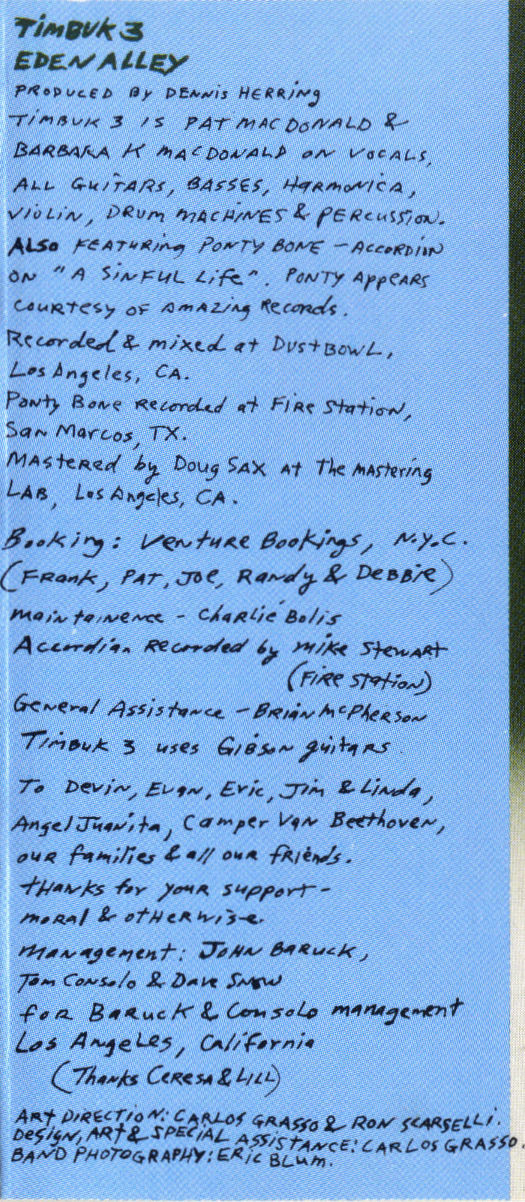 TIMBUK 3
EDEN ALLEY
PRODUCED BY DENNIS HERRING
TIMBUK 3 IS PAT MACDONALD &
BARBARA K MACDONALD ON VOCALS,
ALL GUITARS, BASSES, HARMONICA,
VIOLIN, DRUM MACHINES & PERCUSSION.
ALSO FEATURING PONTY BONE - ACCORDION
ON "A SINFUL LIFE". PONTY APPEARS
COURTESY OF AMAZING RECORDS.
Recorded & mixed at DUSTBOWL,
Los Angeles, CA.
Ponty Bone Recorded at Fire Station,
San Marcos, TX.
Mastered by Doug Sax at The Mastering
LAB, Los Angeles, CA.
Booking: Venture Bookings, N.Y.C.
(Frank, Pat, Joe, Randy & Debbie)
maintainence - Charlie Bolis
Accordian Recorded by Mike Stewart
(Fire Station)
General Assistance - Brian McPherson
Timbuk 3 uses Gibson guitars.
To Devin, Evan, Eric, Jim & Linda,
Angel Juanita, Camper Van Beethoven,
our families & all our friends.
thanks for your support -
moral & otherwise.
management: John Baruck,
Tom Consolo & Dave Snow
for Baruck & Consolo management
Los Angeles, California
(Thanks Ceresa & Lill)
ART DIRECTION: CARLOS GRASSO & RON SCARSELLI.
DESIGN, ART & SPECIAL ASSISTANCE: CARLOS GRASSO.
BAND PHOTOGRAPHY: ERIC BLUM.